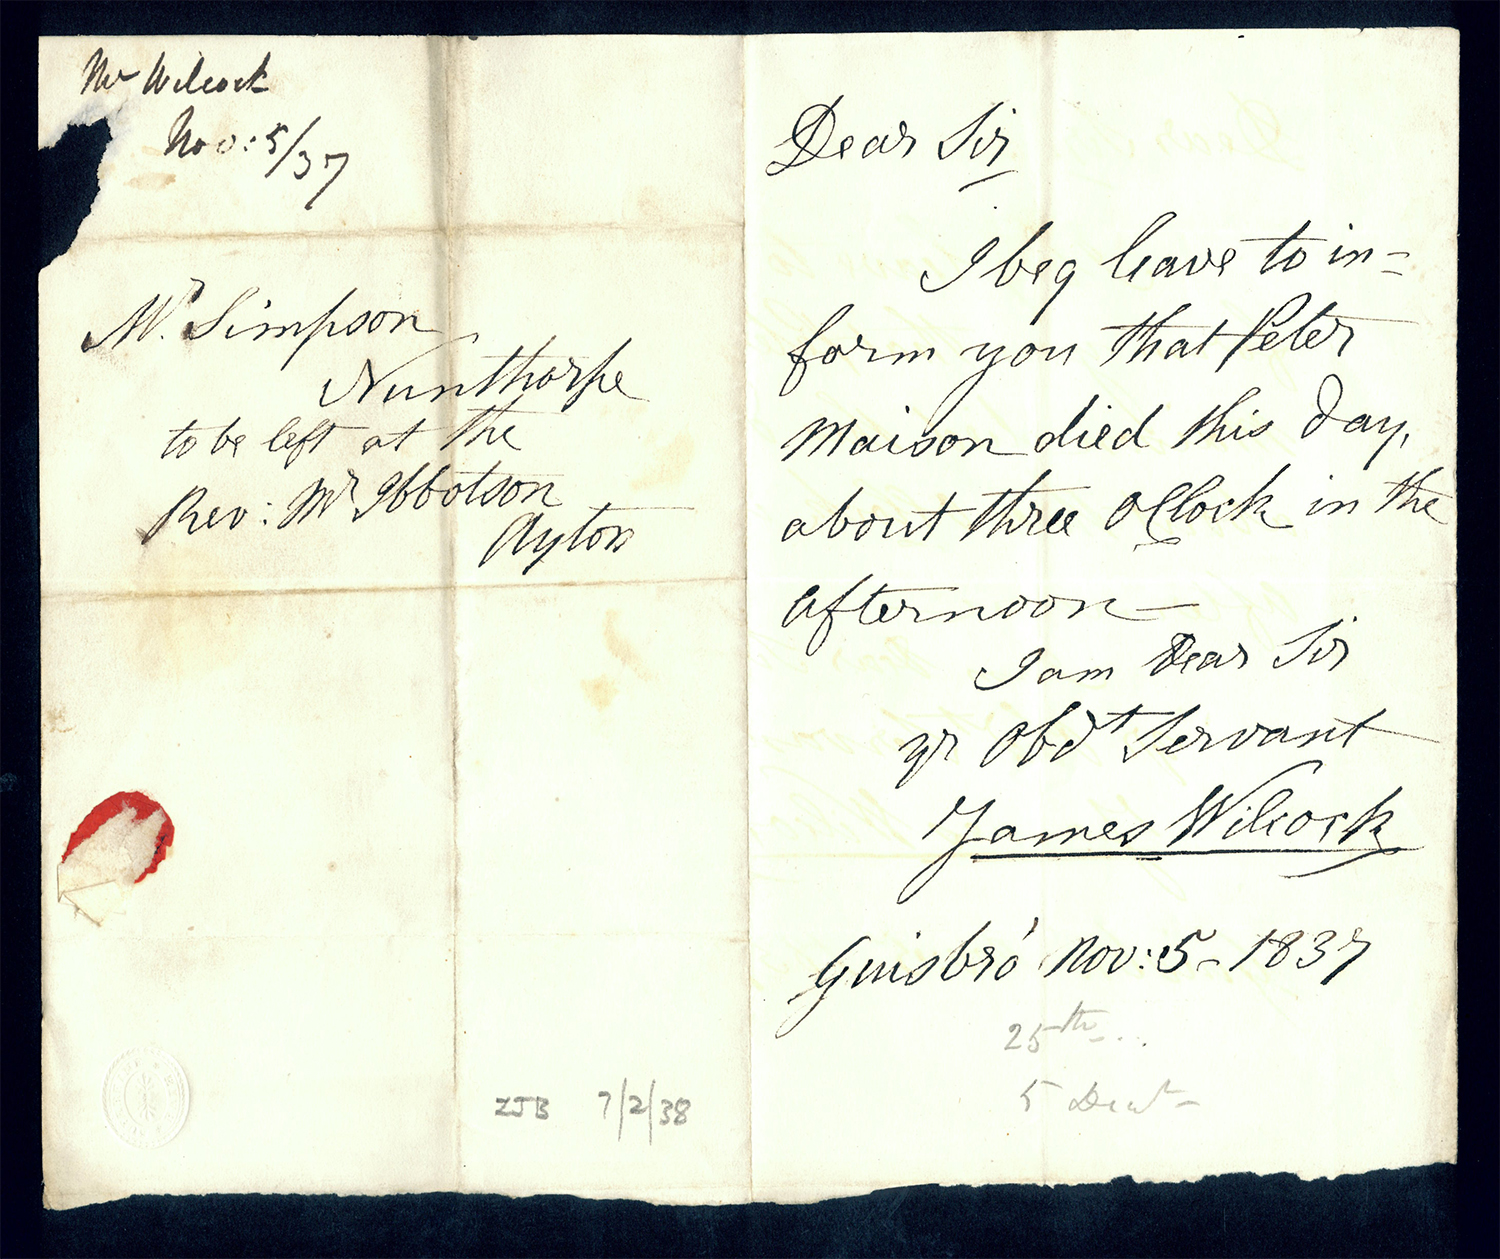 Mr Wilcock
Nov: 5/37
Mr. Simpson
Nunthorpe
to be left at the
Rev: Mr Ibbotson
Ayton
ZJB 7/2/38
Dear Sir
I beg leave to in=
form you that Peter
Maison died this day,
about three oClock in the
afternoon—
I am Dear Sir
yr Obdt Servant
James Wilcock
Guisbro' Nov: 5 - 1837
25th - . .
5